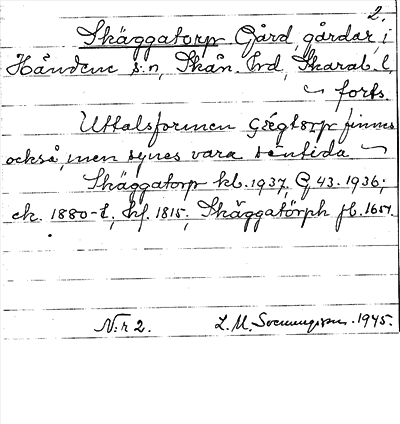 2.
Skäggatorp Gård, gårdar, i
Händene s:n, Skån. hd, Skarab. l.
forts.
Uttalsformen finnes
också, men synes vara sentida
Skäggatorp kb. 1937, G 43. 1936;
ek. 1880-t., hf. 1815, Skäggatörph jb. 1654.
N:r 2. L. M. Svennungsson. 1945.